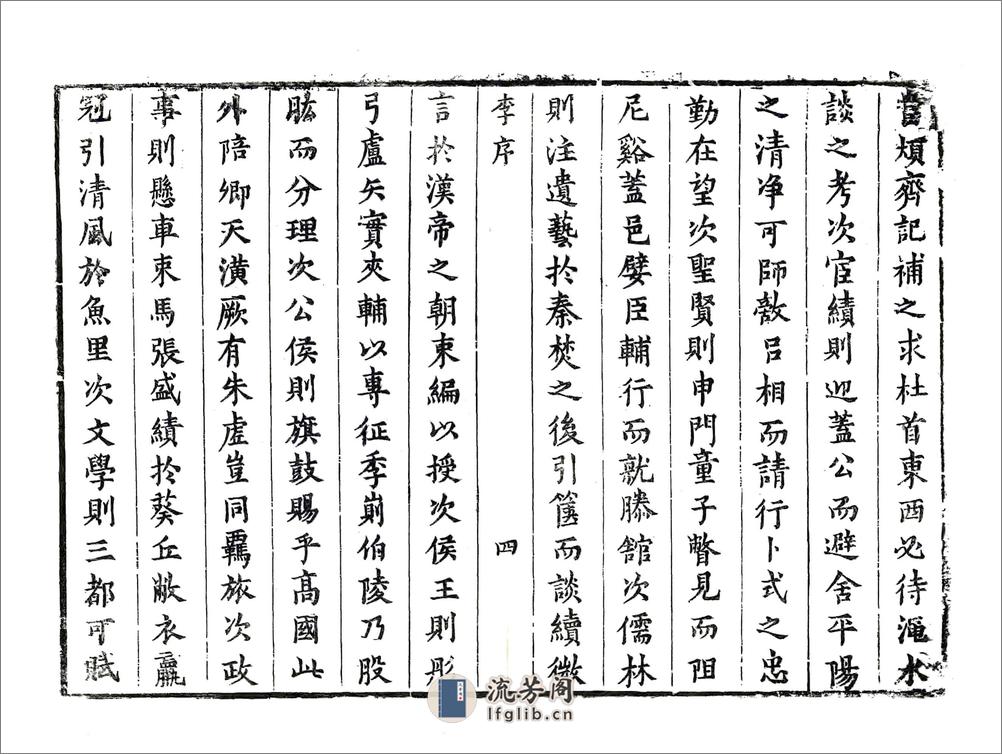 嘗煩齊記補之求杜首東西必待澠水
談之考次宦績則迎蓋公而避舍平陽
之清净可師敎吕相而請行卜式之忠
勤在望次聖賢則申門童子瞥見而阻
尼谿蓋邑嬖臣輔行而就滕舘次儒林
則注遺藝於秦焚之後引簉而談續微
李序 四
言於漢帝之朝束編以授次侯王則彤
弓盧矢實夾輔以專征季萴伯陵乃股
肱而分理次公侯則旗鼓賜乎髙國此
外陪卿天潢厥有朱虚豈同羈旅次政
事則懸車束馬張盛績於葵丘敝衣羸
冠引清風於魚里次文學則三都可賦
流芳阁
lfglib.cn